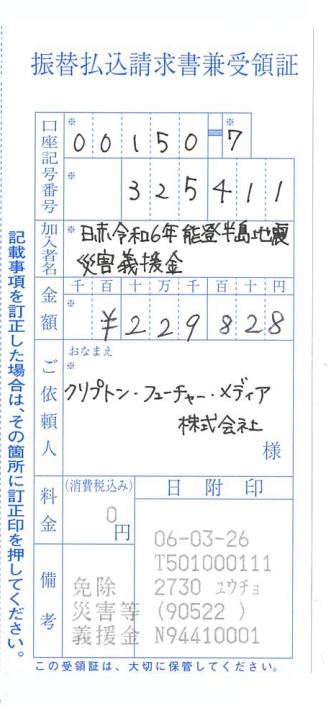 振替払込請求書兼受領証
口座記号番号
※
00150-7
※
325411
加入者名
※
日赤令和6年能登半島地震
災害義援金
金額
千百十万千百十円
※
¥229828
ご依頼人
おなまえ
※
クリプトン・フューチャー・メディア
株式会社
様
料金
(消費税込み)
0
円
備考
免除
災害等
義援金
日附印
06-03-26
T501000111
2730 ユウチョ
(90522 )
N94410001
この受領証は、大切に保管してください。
記載事項を訂正した場合は、その箇所に訂正印を押してください。